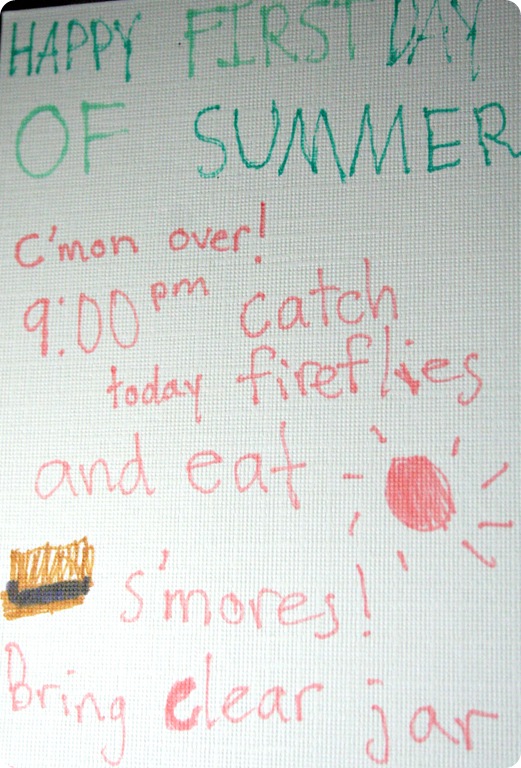 HAPPY FIRST DAY
OF SUMMER
C'mon over!
9:00 pm catch
today fireflies
and eat
s'mores!
Bring clear jar